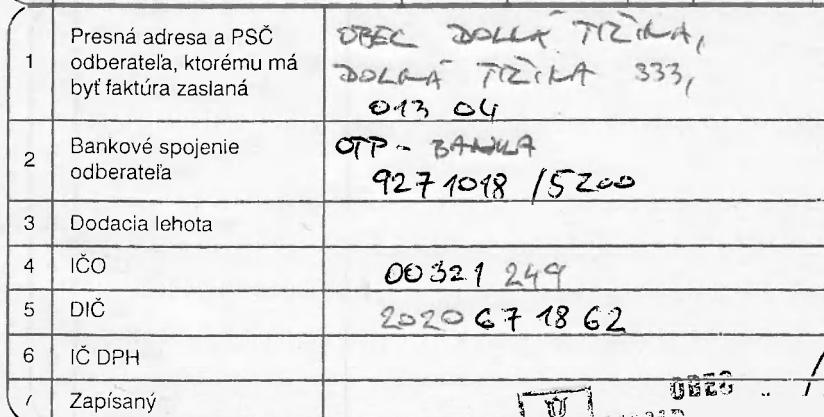 1 Presná adresa a PSČ
odberateľa, ktorému má
byť faktúra zaslaná
OBEC DOLNÁ TIŽINA,
DOLNÁ TIŽINA 333,
013 04
2 Bankové spojenie
odberateľa
OTP - BANKA
9271018 /5200
3 Dodacia lehota
4 IČO 00321 249
5 DIČ 2020671862
6 IČ DPH
Zapísaný
OBEC